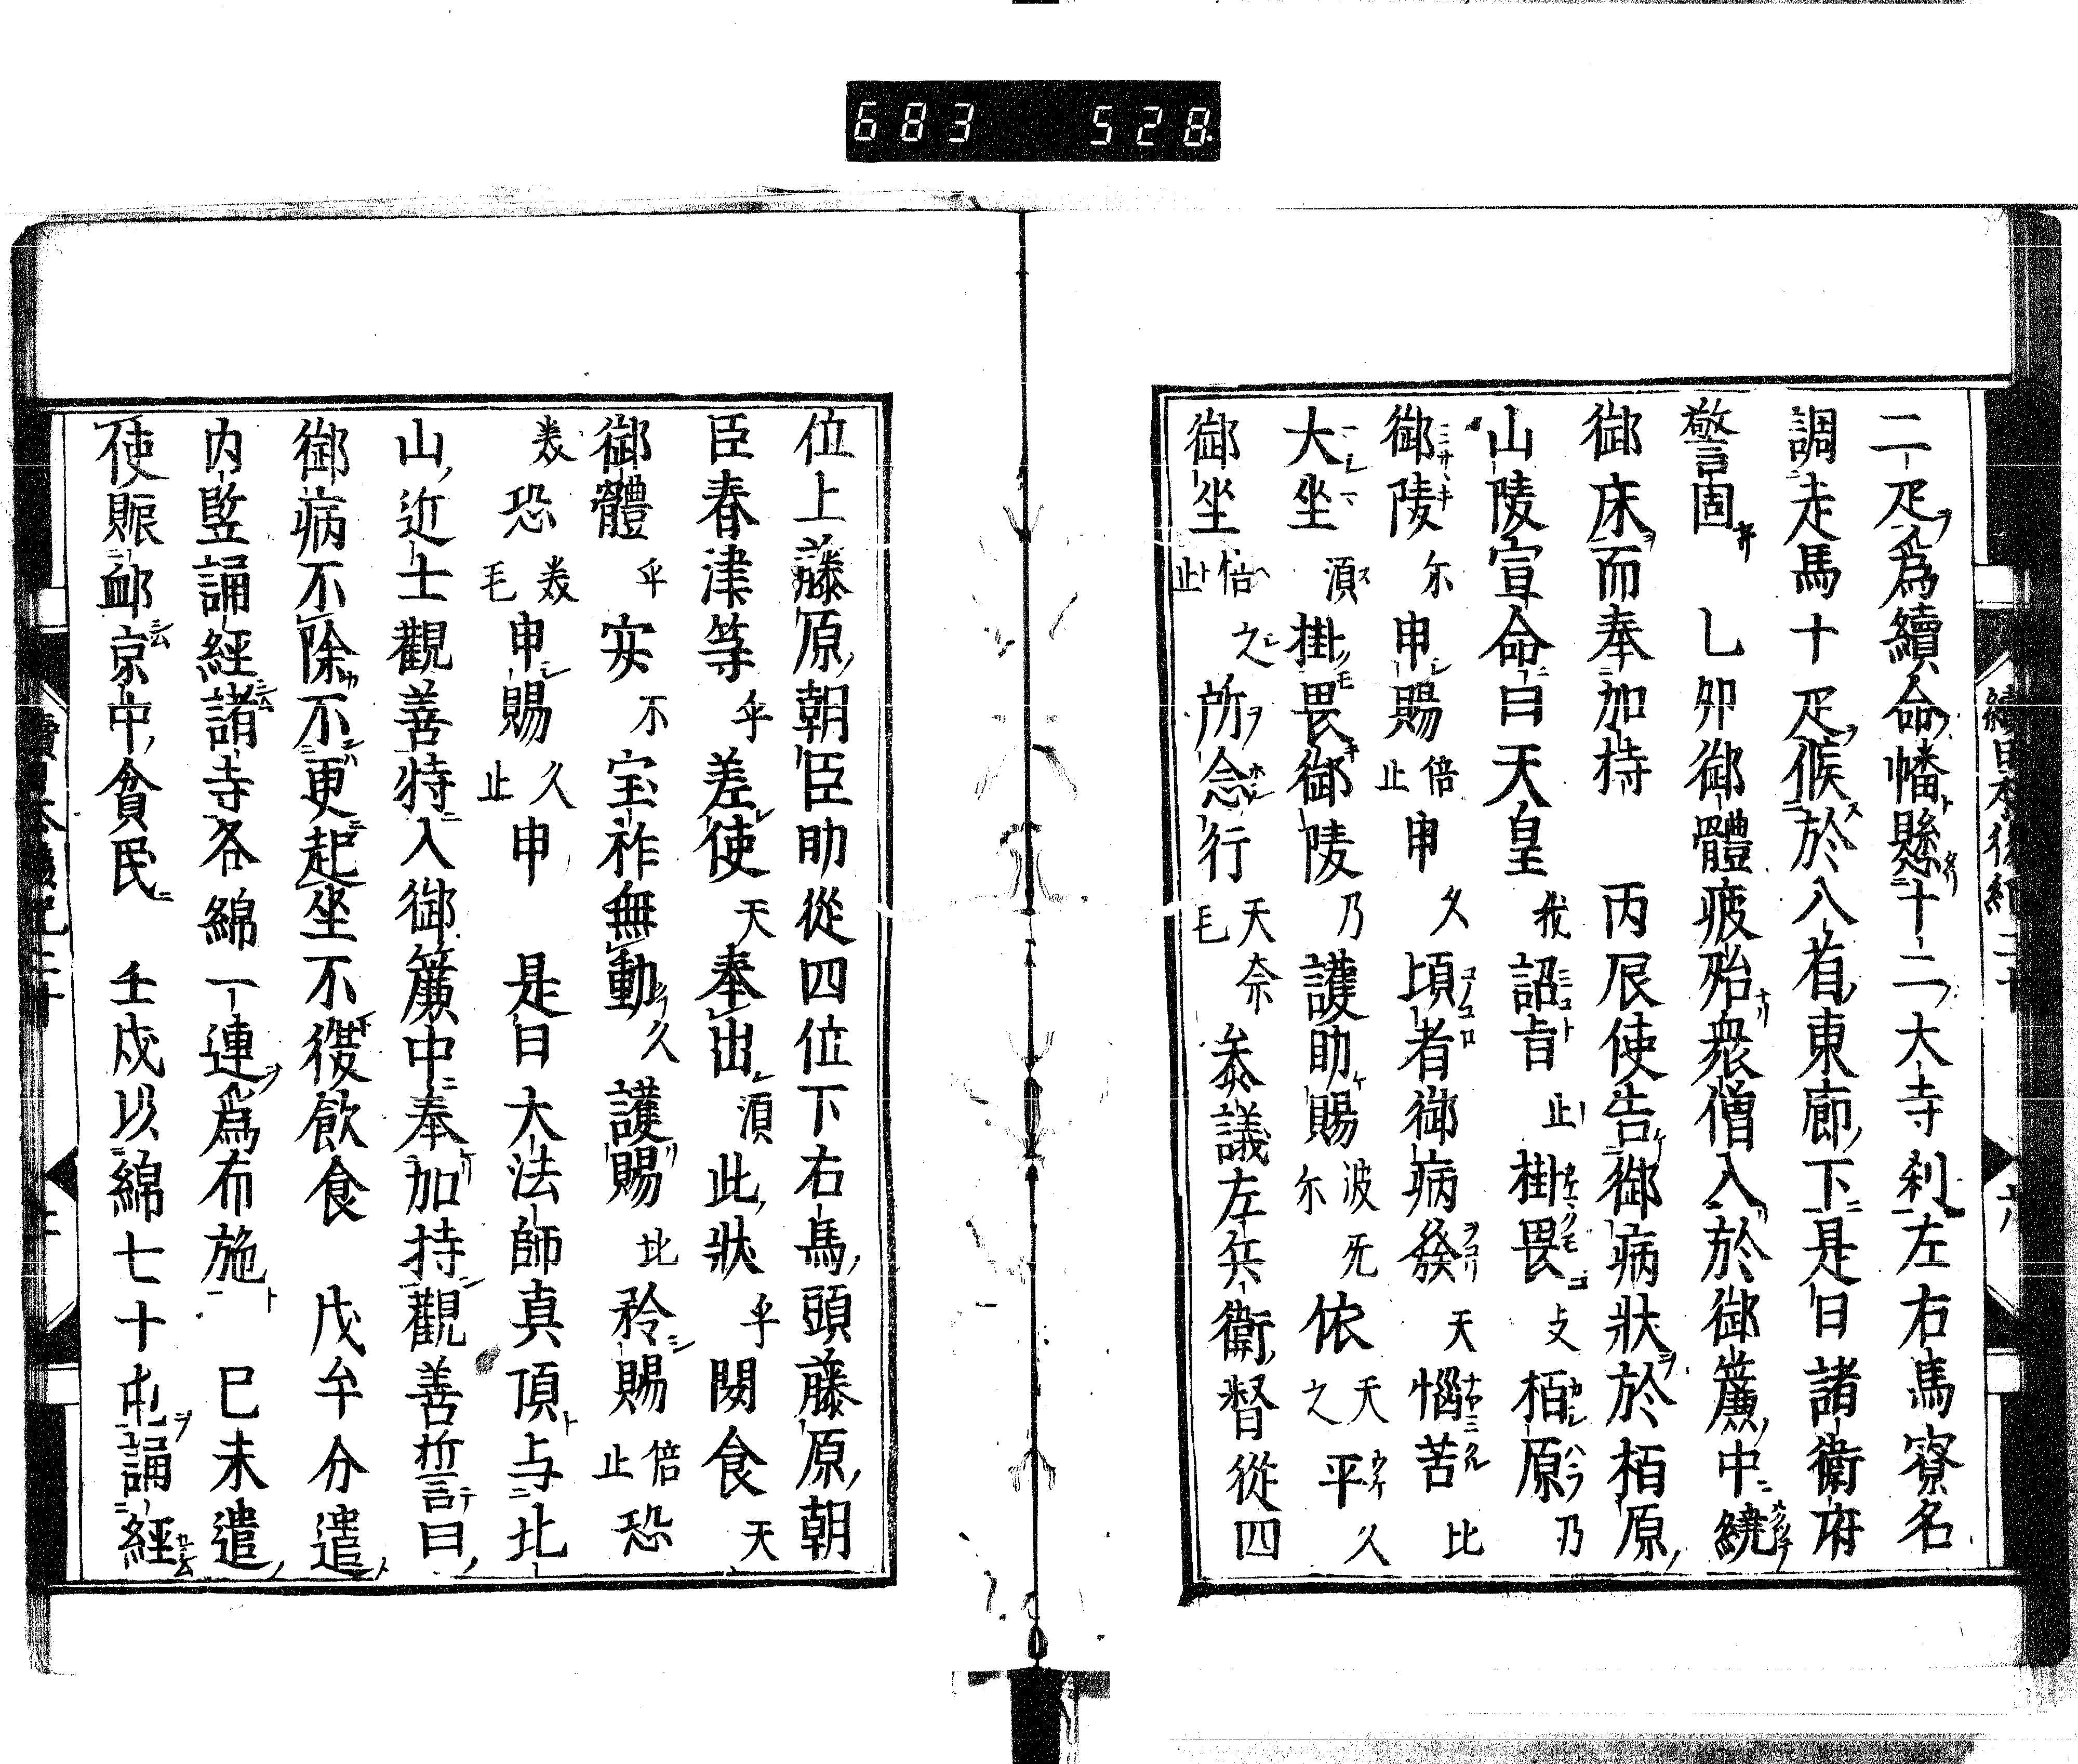 683 528
二疋爲續命幡懸十二大寺刹左右馬寮名
調走馬十疋候於八省東廊下是日諸衛府
警固 乙卯御體疲殆衆僧入於御簾中繞
御床而奉加持 丙辰使告御病狀於栢原
山陵宣命曰天皇我詔旨止掛畏支栢原乃
御陵尓申賜倍止申久頃者御病發天惱苦比
大坐須掛畏御陵乃護助賜波尓旡依天之平久
御坐倍止之所念行天毛奈叅議左兵衛督從四
位上藤原朝臣助從四位下右馬頭藤原朝
臣春津等乎差使天奉出須此狀乎聞食天
御體乎安不宝祚無動久護賜比矜賜倍止恐
美恐美毛申賜久止申 是日大法師真頂与比
山近士觀善特入御簾中奉加持觀善誓曰
御病不除不更起坐不復飲食 戊午分遣
内竪誦經諸寺各綿一連爲布施 已未遣
使賑䘏京中貧民 壬戌以綿七十屯誦經
續日本後紀二十 六